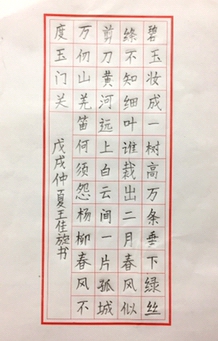 碧玉妆成一树高万条垂下绿丝
绦不知细叶谁裁出二月春风似
剪刀黄河远上白云间一片孤城
万仞山羌笛何须怨杨柳春风不
度玉门关
戊戌仲夏王佳书